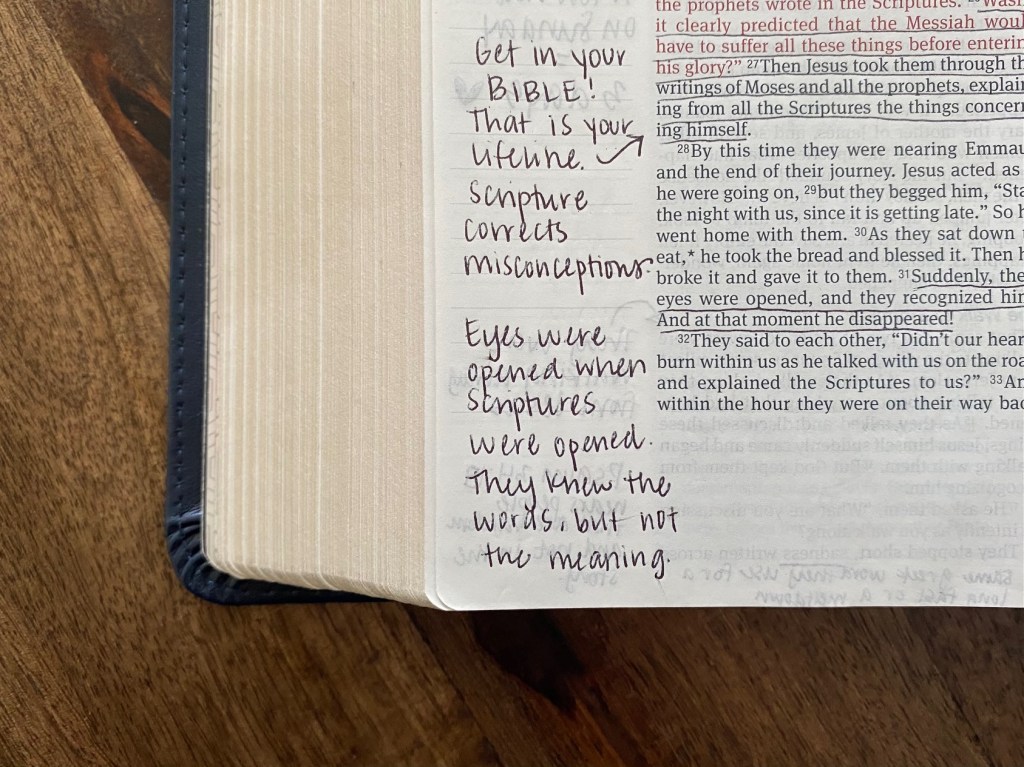 Get in your
BIBLE!
That is your
lifeline.
Scripture
corrects
misconceptions.
Eyes were
opened when
scriptures
were opened.
They knew the
words, but not
the meaning.
the prophets wrote in the Scriptures.
it clearly predicted that the Messiah woul
have to suffer all these things before enterin
his glory?” 27Then Jesus took them through th
writings of Moses and all the prophets, explain
ing from all the Scriptures the things concern
ing himself.
28By this time they were nearing Emmau
and the end of their journey. Jesus acted as
he were going on, 29but they begged him, “Sta
the night with us, since it is getting late.” So h
went home with them. 30As they sat down
eat,* he took the bread and blessed it. Then h
broke it and gave it to them. 31Suddenly, the
eyes were opened, and they recognized him
And at that moment he disappeared!
32They said to each other, “Didn’t our hear
burn within us as he talked with us on the roa
and explained the Scriptures to us?” 33An
within the hour they were on their way bac